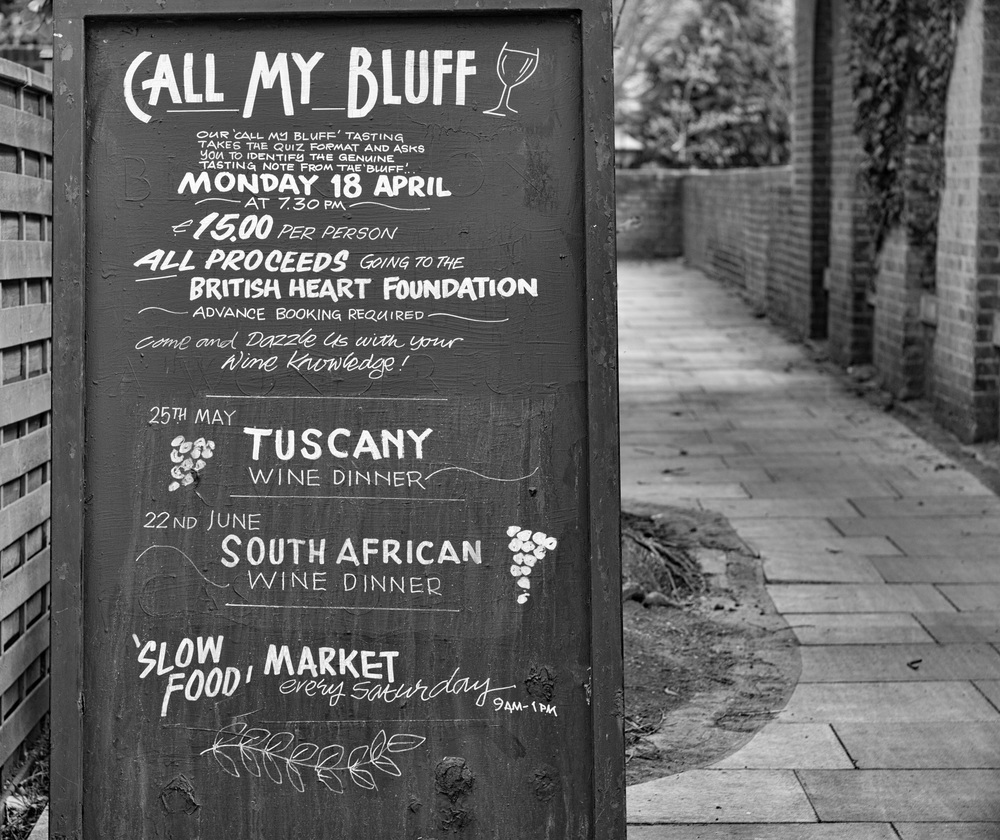 CALL MY BLUFF
OUR 'CALL MY BLUFF' TASTING
TAKES THE QUIZ FORMAT AND ASKS
YOU TO IDENTIFY THE GENUINE
TASTING NOTE FROM THE 'BLUFF'..
MONDAY 18 APRIL
AT 7.30 PM
£15.00 PER PERSON
ALL PROCEEDS GOING TO THE
BRITISH HEART FOUNDATION
ADVANCE BOOKING REQUIRED
come and Dazzle Us with your
Wine Knowledge!
25TH MAY
TUSCANY
WINE DINNER
22ND JUNE
SOUTH AFRICAN
WINE DINNER
'SLOW
FOOD' MARKET
every saturday
9AM-1PM